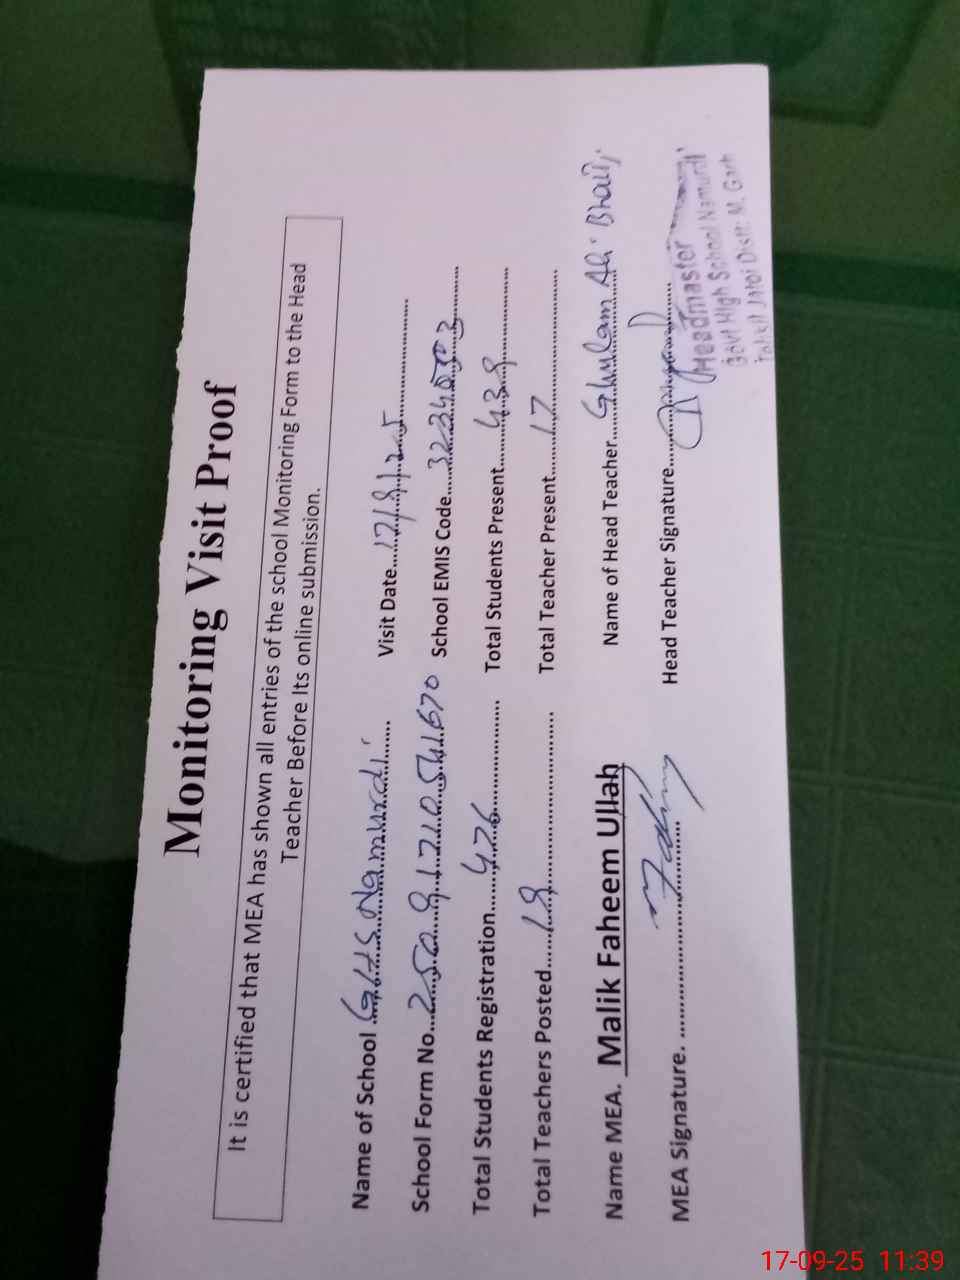 Monitoring Visit Proof
It is certified that MEA has shown all entries of the school Monitoring Form to the Head
Teacher Before Its online submission.
Name of School GHS Namurdi Visit Date 17/9/25
School Form No. 250 9 1710541670 School EMIS Code 32345
Total Students Registration 476 Total Students Present 439
Total Teachers Posted 19 Total Teacher Present 17
Name MEA. Malik Faheem Ullah Name of Head Teacher Ghulam Ali Bhatti
MEA Signature. Head Teacher Signature
Headmaster
Govt High School Namurdi
Tehsil Jatoi Distt: M. Garh
17-09-25 11:39